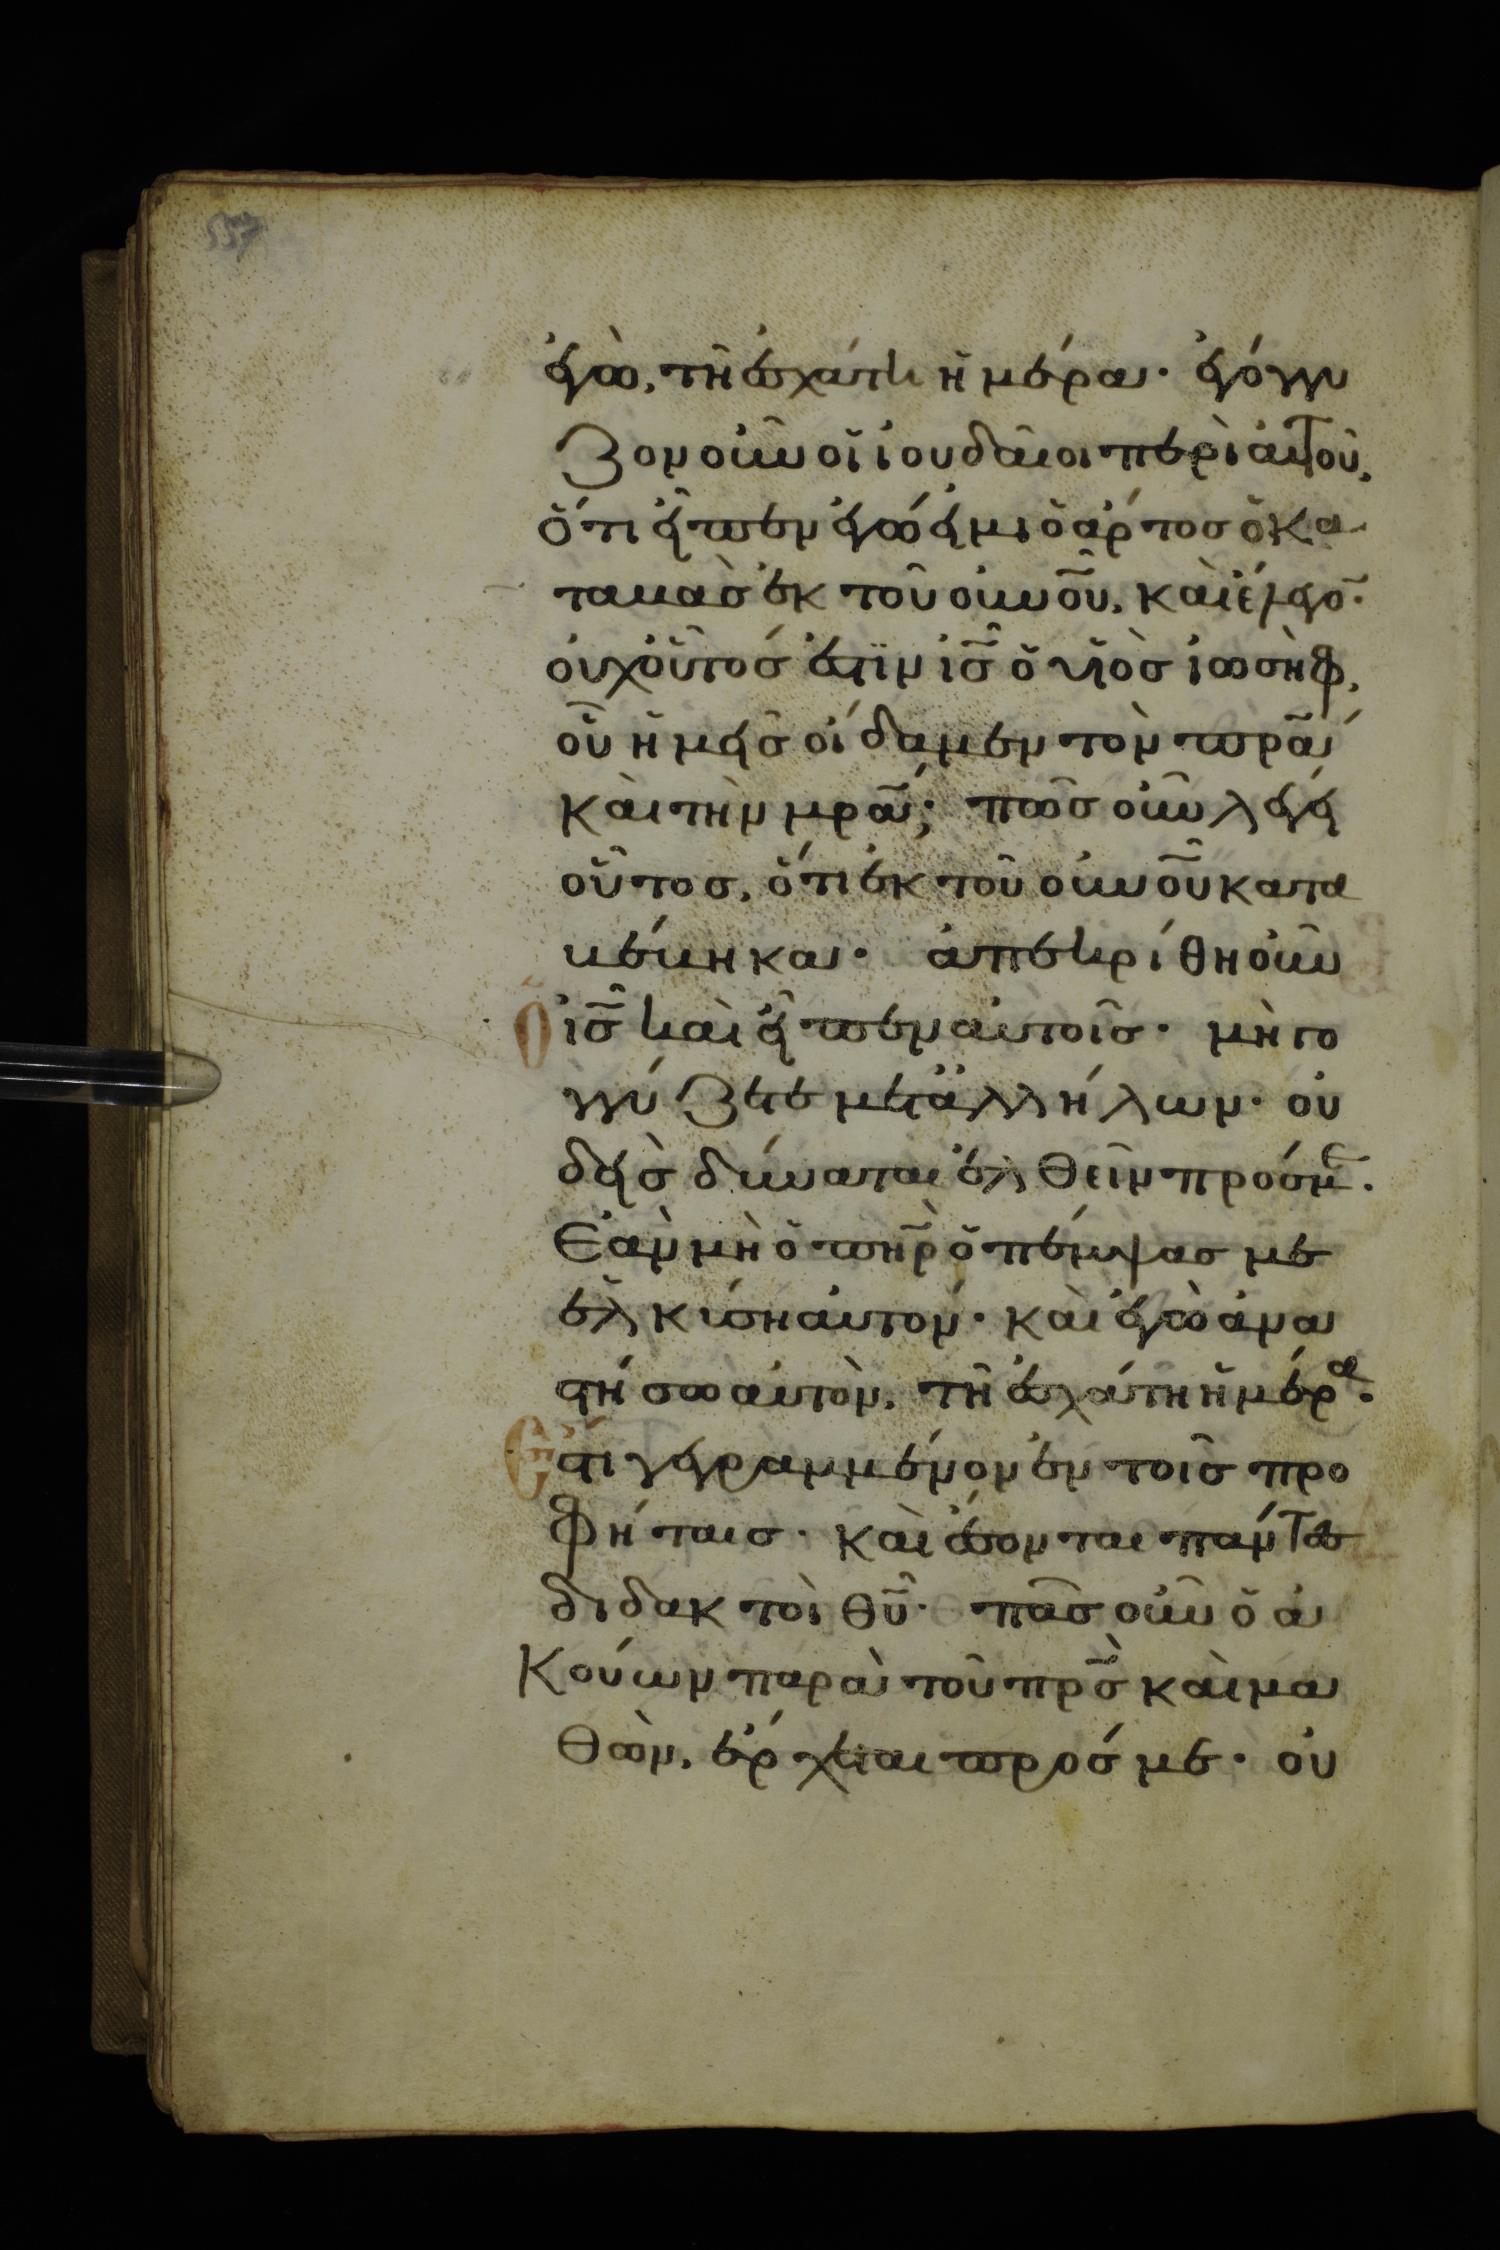 557
ἐγὼ, τῆ ἐσχάτη ἡμέρα· ἐγόγγυ
ζον οὖν οἱ ἰουδαῖοι περὶ αὐτοῦ,
ὅτι εἶπεν ἐγώ εἰμι ὁ ἄρτος ὁ κα
ταβὰς ἐκ τοῦ οὐνοῦ, καὶ ἔλεγο̄·
οὐχ οὗτός ἐστϊν ἰς̄ ὁ υἱὸς ἰωσὴφ,
οὗ ἡμεῖς οἴδαμεν τὸν πρᾱ́
καὶ τὴν μρᾱ́; πῶς οὖν λέγει
οὗτος, ὅτι ἐκ τοῦ οὐνοῦ κατα
βέβηκα· ἀπεκρίθη οὖν
ὁ ἰς̄ καὶ εἶπεν αὐτοῖς· μὴ γο
γγύζετε μετἀλλήλων· οὐ
δεὶς δύναται ἐλθεῖν πρός μ̄ε·
Ἐὰν μὴ ὁ πη̄ρ ὁ πέμψας με
ἑλκύση αὐτόν· καὶ ἐγὼ ἀνα
στήσω αὐτὸν, τῆ ἐσχάτη ἡμέρα·
Ἔστι γεγραμμένον ἐν τοῖς προ
φήταις· καὶ ἔσονται πάντες
διδακτοὶ θῡ· πᾶς οὖν ὁ ἀ
Κούων παρὰ τοῦ πρς̄ καὶ μα
θὼν, ἔρχεται πρός με· οὐ